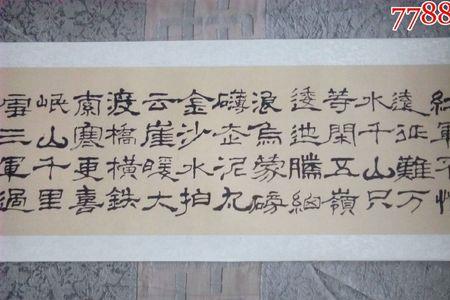 7788
紅軍不怕
遠征難万
水千山只
等閑五嶺
逶迤騰細
浪烏蒙磅
礴走泥丸
金沙水拍
云崖暖大
渡橋橫鉄
索寒更喜
岷山千里
雪三軍過